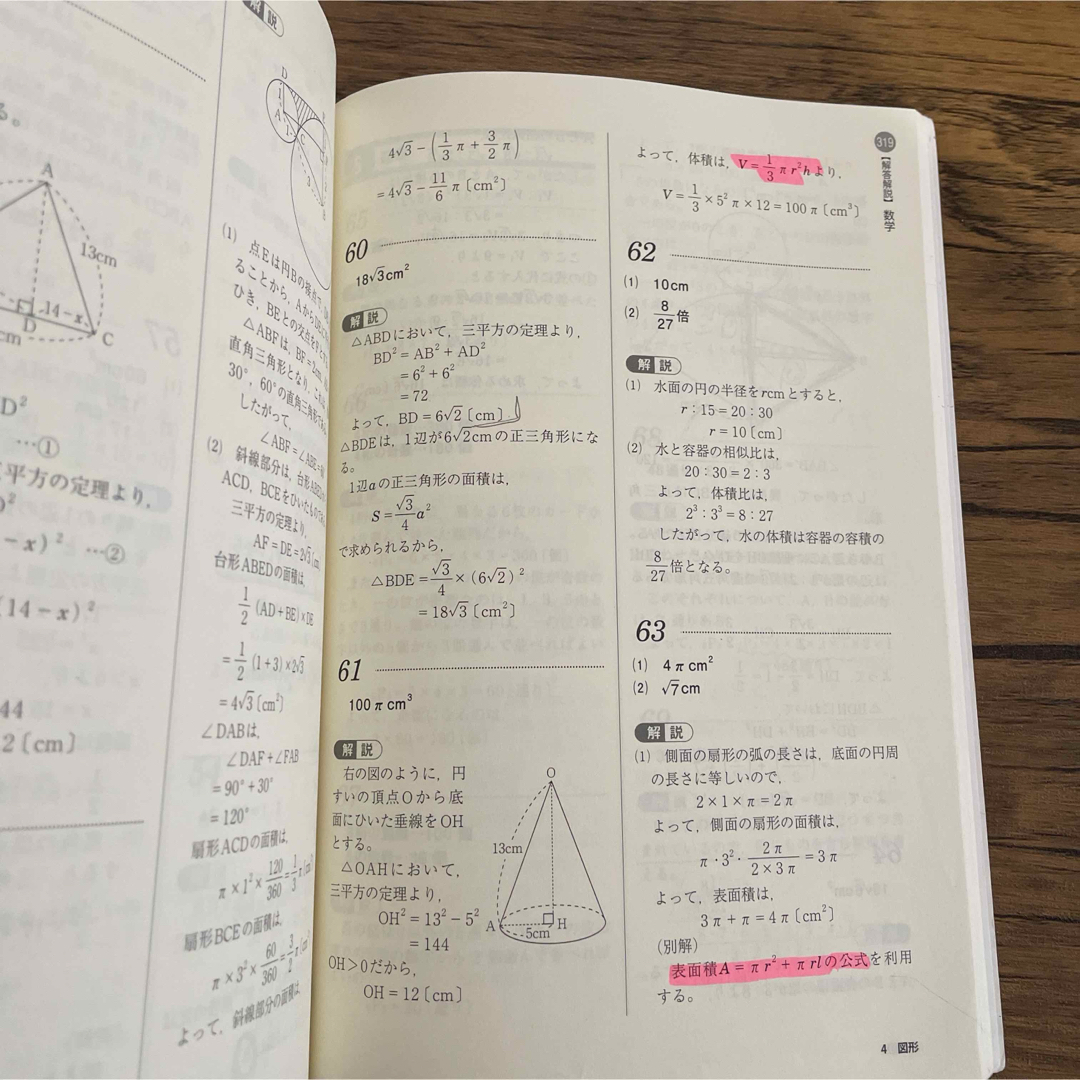 解説
る。
A
13cm
14−x
D
C
D²
…①
平方の定理より,
D²
−x)² …②
(14−x)²
44
2〔cm〕
D
1
A
1
C
3
B
(1) 点Eは円Bの接点で,
ることから, Aから
ひき, BEとの交点を
△ABFは, BF=2cm,
直角三角形となり, これは
30°, 60°の直角三角形である
したがって,
∠ABF=∠ABE=
(2) 斜線部分は, 台形ABED
ACD, BCEをひいたもの
三平方の定理より,
AF=DE=2√3〔cm
台形ABEDの面積は,
1/2 (AD+BE)×DE
=1/2 (1+3)×2√3
=4√3〔cm²〕
∠DABは,
∠DAF+∠FAB
=90°+30°
=120°
扇形ACDの面積は,
π×1²×120/360=1/3 π〔cm²
扇形BCEの面積は,
π×3²×60/360=3/2 π〔cm²
よって, 斜線部分の面積は,
4√3−(1/3 π+3/2 π)
=4√3−11/6 π〔cm²〕
60
18√3cm²
解説
△ABDにおいて, 三平方の定理より,
BD²=AB²+AD²
=6²+6²
=72
よって, BD=6√2〔cm〕
△BDEは, 1辺が6√2cmの正三角形にな
る。
1辺aの正三角形の面積は,
S=√3/4 a²
で求められるから,
△BDE=√3/4×(6√2)²
=18√3〔cm²〕
61
100πcm³
解説
右の図のように, 円
すいの頂点Oから底
面にひいた垂線をOH
とする。
△OAHにおいて,
三平方の定理より,
OH²=13²−5²
=144
OH>0だから,
OH=12〔cm〕
O
13cm
A
H
5cm
よって, 体積は, V=1/3 πr²hより,
V=1/3×5²π×12=100π〔cm³〕
62
(1) 10cm
(2) 8/27倍
解説
(1) 水面の円の半径をrcmとすると,
r:15=20:30
r=10〔cm〕
(2) 水と容器の相似比は,
20:30=2:3
よって, 体積比は,
2³:3³=8:27
したがって, 水の体積は容器の容積の
8/27倍となる。
63
(1) 4πcm²
(2) √7cm
解説
(1) 側面の扇形の弧の長さは, 底面の円周
の長さに等しいので,
2×1×π=2π
よって, 側面の扇形の面積は,
π・3²・2π/(2×3π)=3π
よって, 表面積は,
3π+π=4π〔cm²〕
(別解)
表面積A=πr²+πrlの公式を利用
する。
319
【解答解説】 数学
4 図形